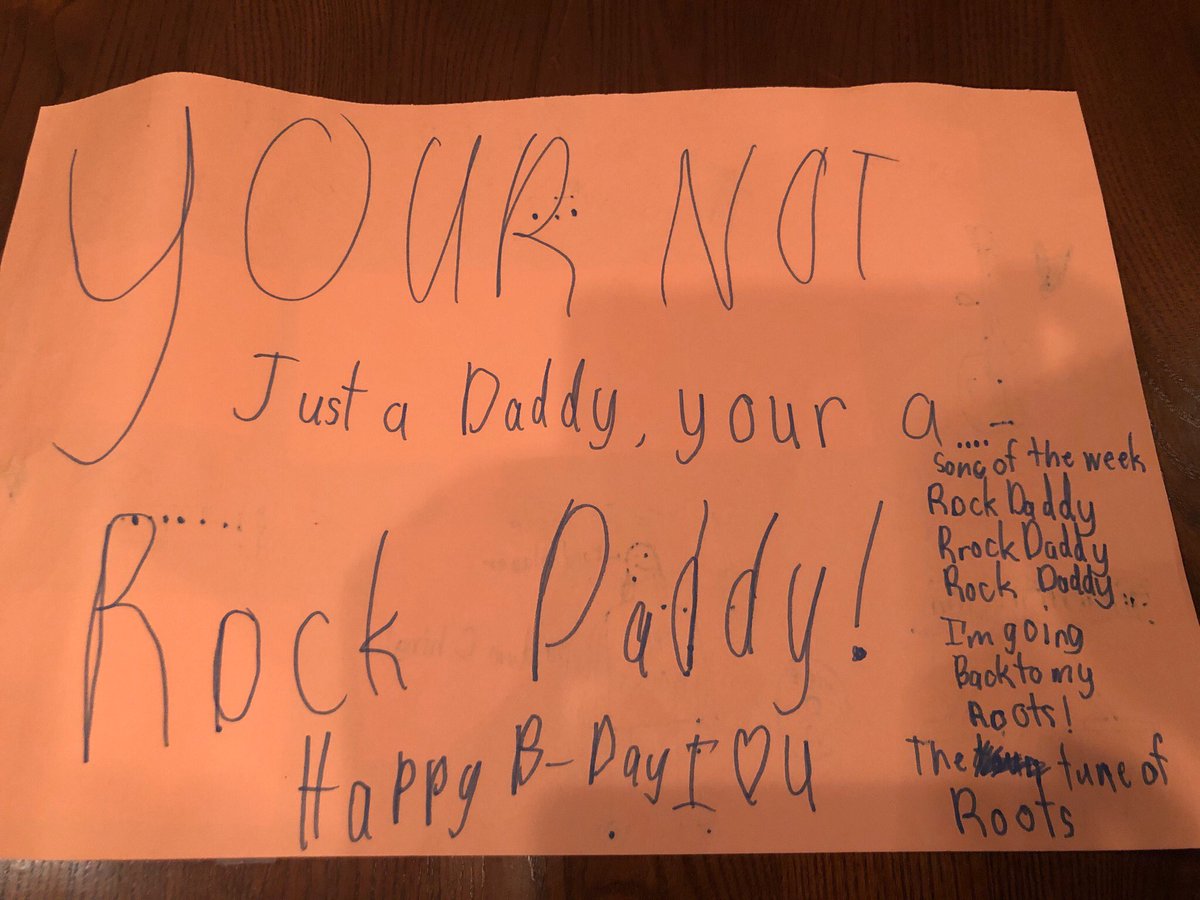 YOUR NOT
Just a Daddy, your a....
Rock Daddy!
Happy B-Day I ♡ U
song of the week
Rock Daddy
Rrock Daddy
Rock Daddy...
I'm going
Back to my
Roots!
The tune of
Roots